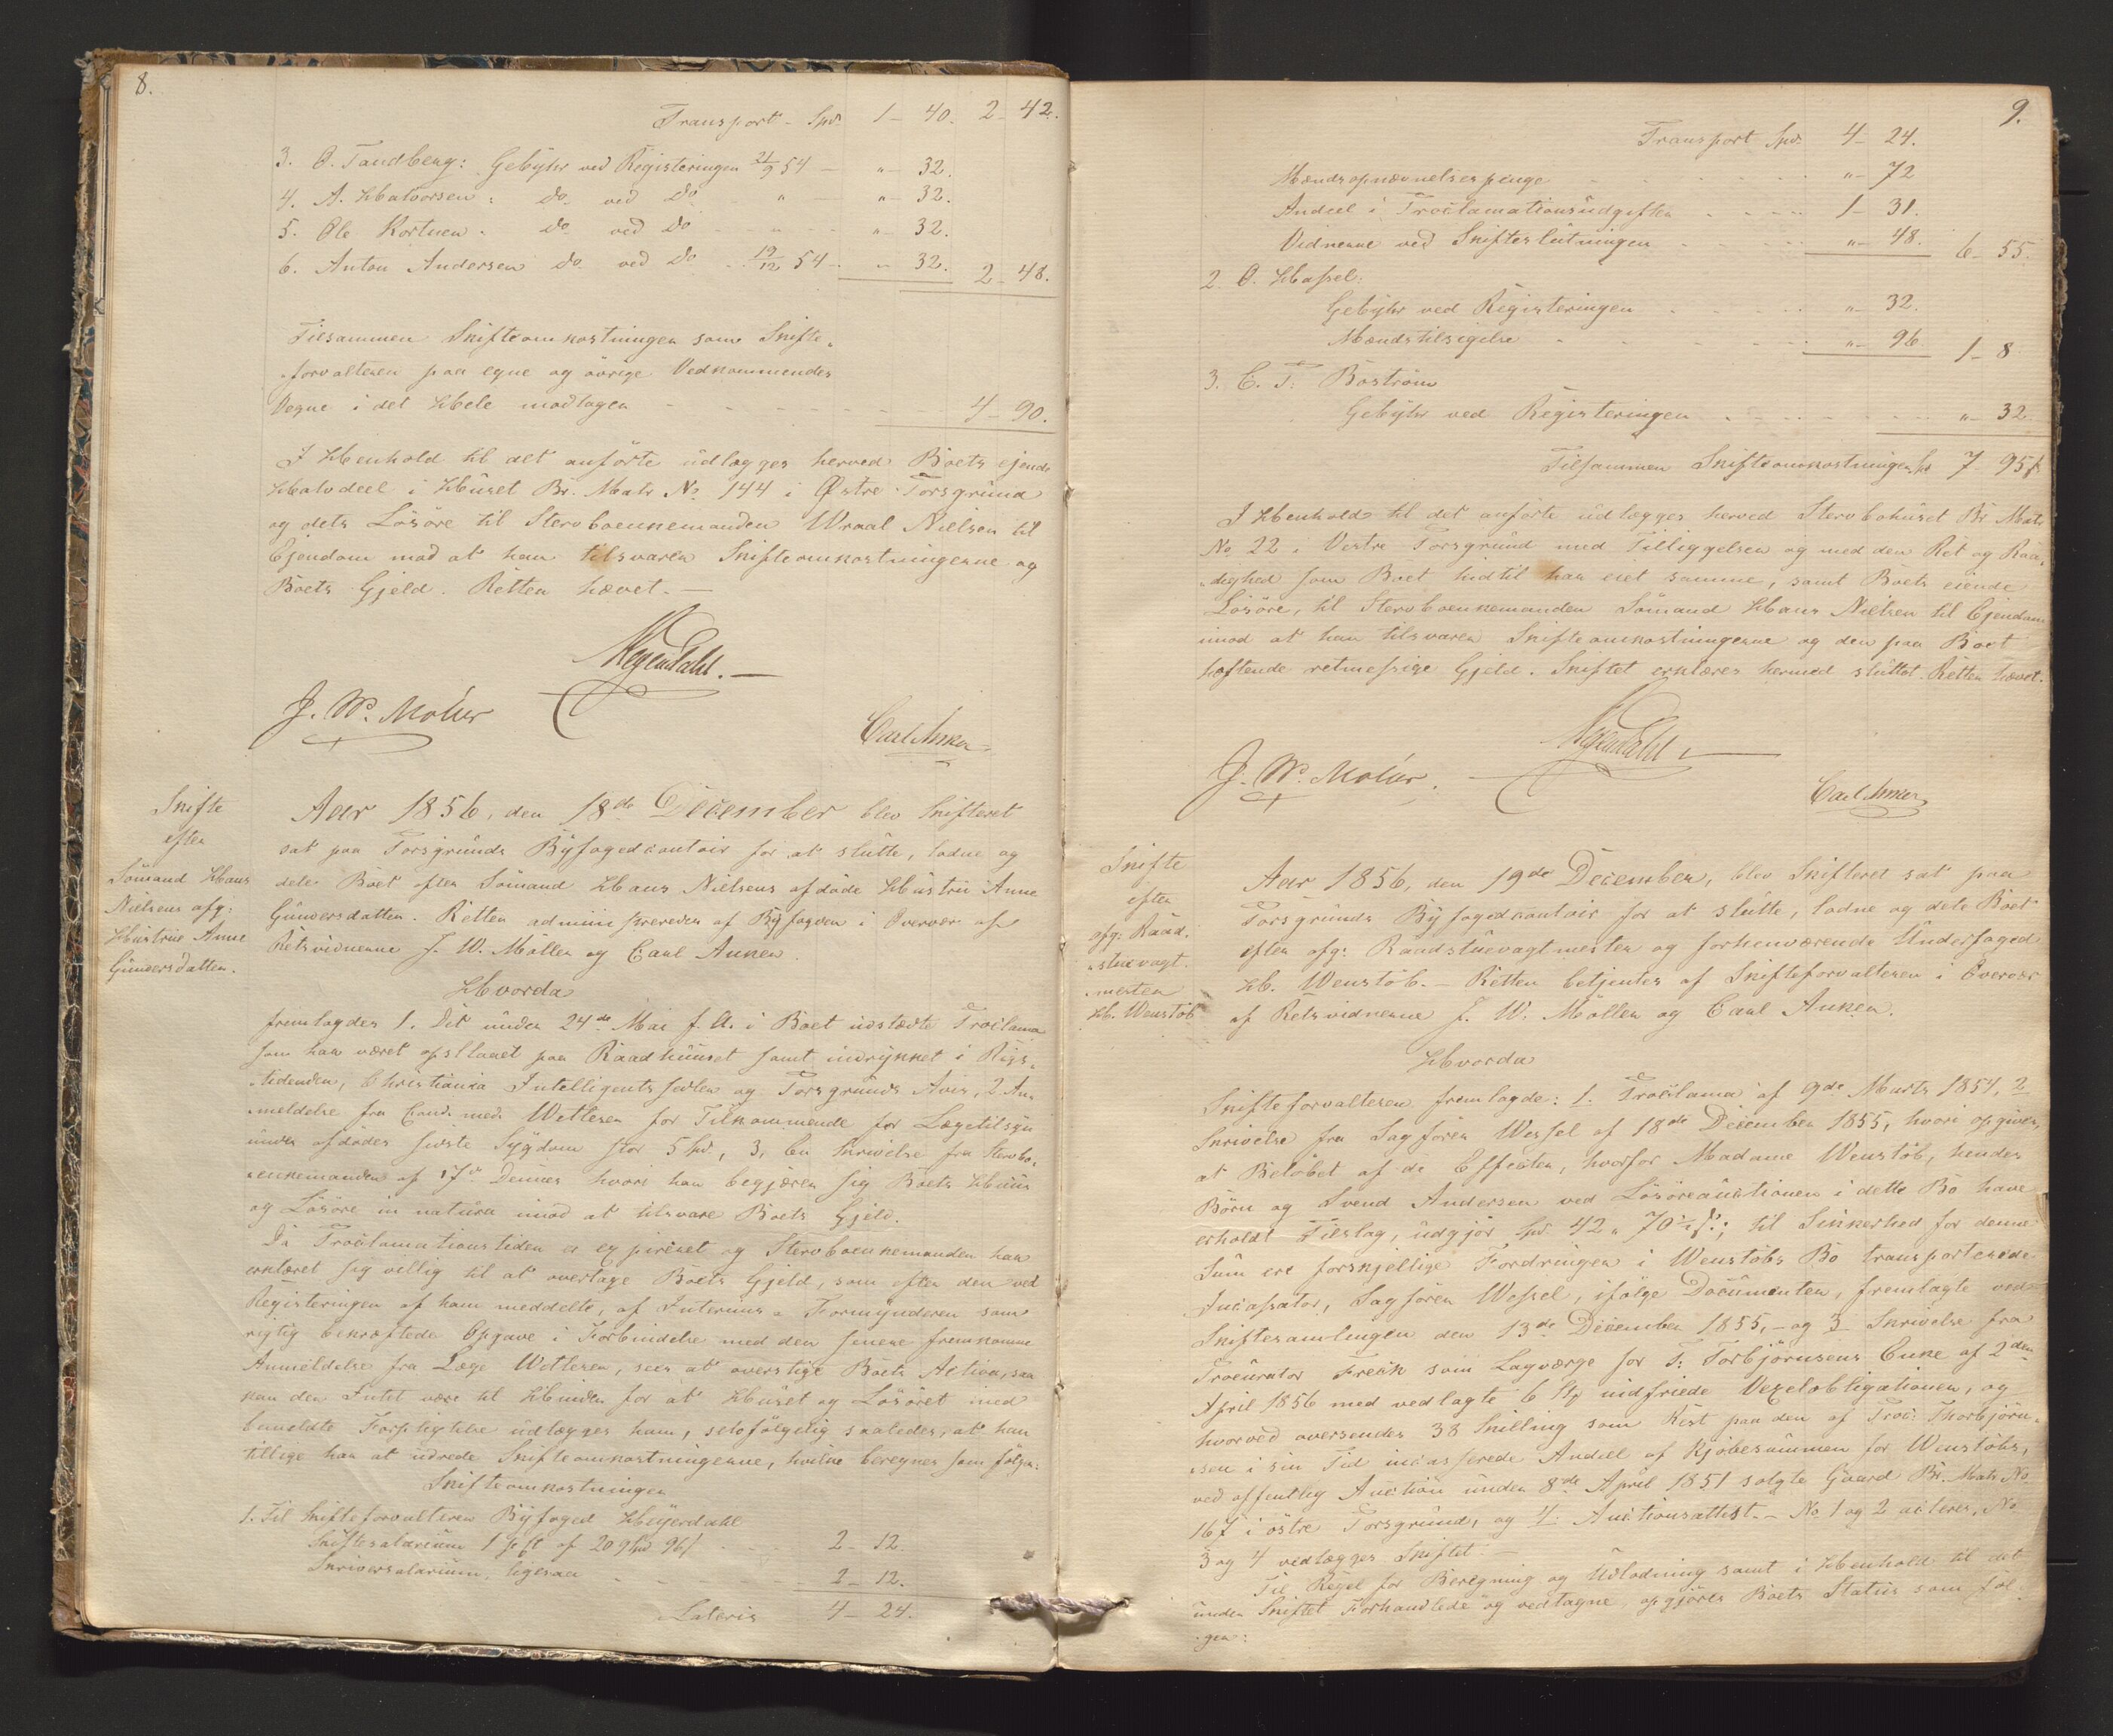 8.
Transport - Spd. 1 - 40. 2 - 42.
3. O. Tandberg: Gebÿhr ved Registeringen 21/9 54 - " - 32.
4. A. Halvorsen: do ved do - " - " - 32.
5. Ole Kortnen. do ved do - " - " - 32.
6. Anton Andersen do ved do - 19/12 54 - " - 32. 2 - 48.
Tilsammen Skifteomkostninger som Skifte-
-forvalteren paa egne og övrige Vedkommendes
Vegne i det Hele modtager - - - - - 4 - 90.
I Henhold til det anförte udlægges herved Boets ejende
Halvdeel i Huset Br. Matr. No 144 i Østre Porsgrund
og dets Lösöre til Stervboenkemanden Wraal Nielsen til
Ejendom mod at han tilsvarer Skifteomkostningerne og
Boets Gjeld. Retten hævet. -
Heyerdahl. -
J. W. Möller
Carl Anker
Skifte
efter
Sömand Hans
Nielsens afg:
Hustrue Anne
Gunversdatter.
Aar 1856, den 18de December blev Skifteret
sat paa Porsgrunds Byfogedcontoir for at slutte, lodne og
dele Boet efter Sömand Hans Nielsens afdöde Hustru Anne
Gunversdatter. Retten administreredes af Byfogden i Overvær af
Retsvidnerne J. W. Möller og Carl Anker.
Hvorda
fremlagdes 1. Det under 24de Mai f. A. i Boet udstædte Proclama
som har været opslaaet paa Raadhuuset samt indrykket i Rigs-
-tidenden, Christiania Intelligentssedler og Porsgrunds Avis, 2. An-
-meldelse fra Cand. med. Wetlesen for Tilkommende for Lægetilsyn
under afdödes sidste Sygdom stor 5 Spd., 3, En Skrivelse fra Stervbo-
-enkemanden af 17de Dennes hvori han begjærer sig Boets Huus
og Lösöre in natura imod at tilsvare Boets Gjeld.
Da Proclamationstiden er expireret og Stervboenkemanden har
erklæret sig villig til at overtage Boets Gjeld, som efter den ved
Registeringen af ham meddelte, af Interims-Formynderen som
rigtig bekræftede Opgave i Forbindelse med den senere fremkomne
Anmeldelse fra Læge Wetlesen, sees at overstige Boets Activa, saa
kan der Intet være til Hinder for at Huset og Lösöret med
bemeldte Forpligtelse udlægges ham, selvfölgelig saaledes, at han
tillige har at udrede Skifteomkostningerne, hvilke beregnes som fölger:
Skifteomkostninger
1. Til Skifteforvalteren Byfoged Heyerdahl
Skiftesalarium 1 pCt. af 209 Spd 96 s - - - 2 - 12.
Skriversalarium, ligesaa - - - - 2 - 12.
Lateris 4 - 24.
9.
Transport Spd. 4 - 24.
Mændsopnævnelsespenge - - - - - " - 72
Andeel i Proclamationsudgifter - - - - 1 - 31.
Vidnerne ved Skifteslutningen - - - - " - 48. 6 - 55.
2. O. Hassel:
Gebÿhr ved Registeringen - - - - " - 32.
Mændstilsigelse - - - - - " - 96 1 - 8
3. C. F. Boström
Gebÿhr ved Registeringen - - - - - - " - 32.
Tilsammen Skifteomkostninger Spd 7 - 95 s
I Henhold til det anförte udlægges herved Stervbohuset Br. Matr
No 22 i Vestre Porsgrund med Tilliggelser og med den Ret og Raa-
-dighed som Boet hidtil har eiet samme, samt Boets eiende
Lösöre, til Stervboenkemanden Sömand Hans Nielsen til Ejendom
imod at han tilsvarer Skifteomkostningerne og den paa Boet
hæftende retmessige Gjeld. Skiftet erklæres hermed sluttet. Retten hævet.
Heyerdahl -
J. W. Möller.
Carl Anker
Skifte
efter
afg: Raad-
-stuevagt-
-mester
H. Wenstöb
Aar 1856, den 19de December, blev Skifteret sat paa
Porsgrunds Byfogedkontoir for at slutte, lodne og dele Boet
efter afg: Raadstuevagtmester og forhenværende Underfoged
H. Wenstöb. - Retten betjentes af Skifteforvalteren i Overvær
af Retsvidnerne J. W. Möller og Carl Anker.
Hvorda
Skifteforvalteren fremlagde: 1. Proclama af 9de Marts 1854, 2
Skrivelse fra Sagförer Wessel af 18de December 1855, hvori opgives,
at Belöbet af de Effecter, hvorfor Madame Wenstöb, hendes
Börn og Svend Andersen ved Lösöreauctionen i dette Bo have
erholdt Tilslag, udgjör Spd. 42 " 70 1/2 s.; til Sikkerhed for denne
Sum ere forskjellige Fordringer i Wenstöbs Bo transporterede
Incassator, Sagförer Wessel, ifölge Documenter, fremlagte ved
Skiftesamlingen den 13de December 1855, - og 3 Skrivelse fra
Procurator Freck som Lagværge for F: Torbjörnsens Enke af 2den
April 1856 med vedlagte 6 Stk indfriede Vexelobligationer, og
hvorved oversendes 38 Skilling som Rest paa den af Proc: Thorbjörn-
-sen i sin Tid incasserede Andeel af Kjöbesummen for Wenstöbs,
ved offentlig Auction under 8de April 1851 solgte Gaard Br. Matr No
167 i östre Porsgrund, og 4. Auctionsattest. - No 1 og 2 acteres, No
3 og 4 vedlægges Skiftet. -
Til Regel for Beregning og Udlodning samt i Henhold til det
under Skiftet Forhandlede og vedtagne, opgjöres Boets Status som föl-
-ger: